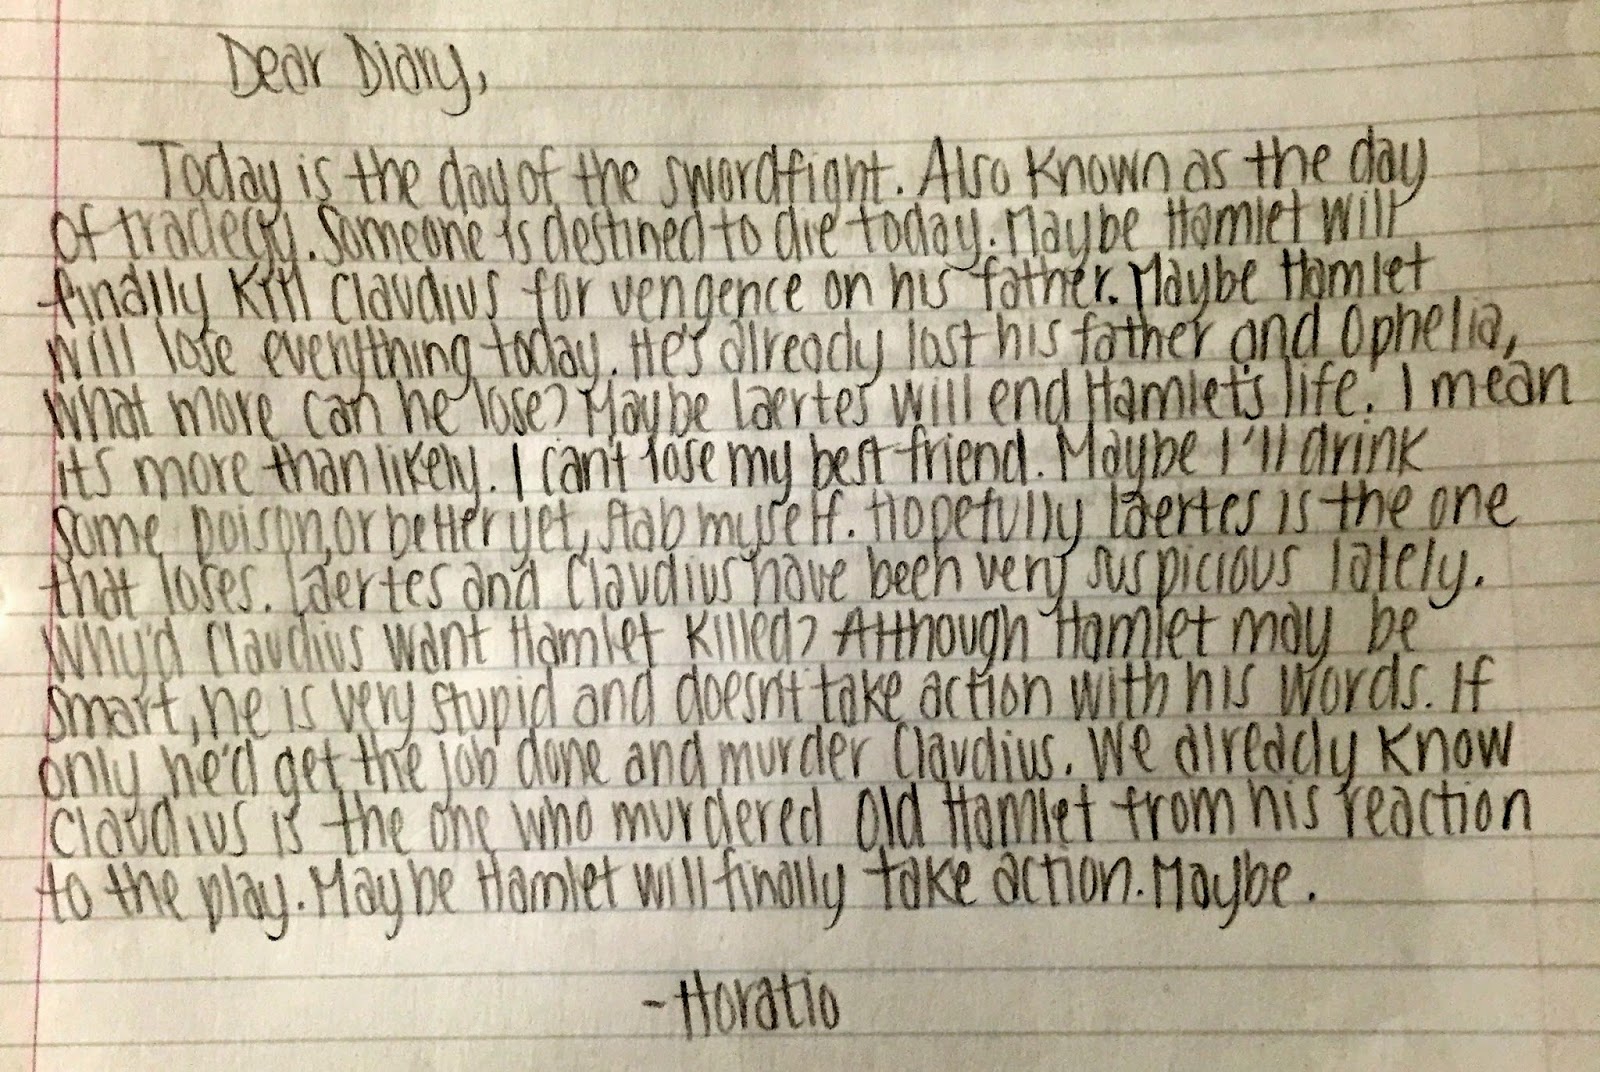 Dear Diary,
Today is the day of the swordfight. Also known as the day
of tradegy. Someone is destined to die today. Maybe Hamlet will
finally kill Claudius for vengence on his father. Maybe Hamlet
will lose everything today. He's already lost his father and Ophelia,
what more can he lose? Maybe Laertes will end Hamlet's life. I mean
its more than likely. I can't lose my best friend. Maybe I'll drink
some poison, or better yet, stab myself. Hopefully Laertes is the one
that loses. Laertes and Claudius have been very suspicious lately.
Why'd Claudius want Hamlet killed? Although Hamlet may be
smart, he is very stupid and doesn't take action with his words. If
only he'd get the job done and murder Claudius. We already know
Claudius is the one who murdered Old Hamlet from his reaction
to the play. Maybe Hamlet will finally take action. Maybe.
-Horatio